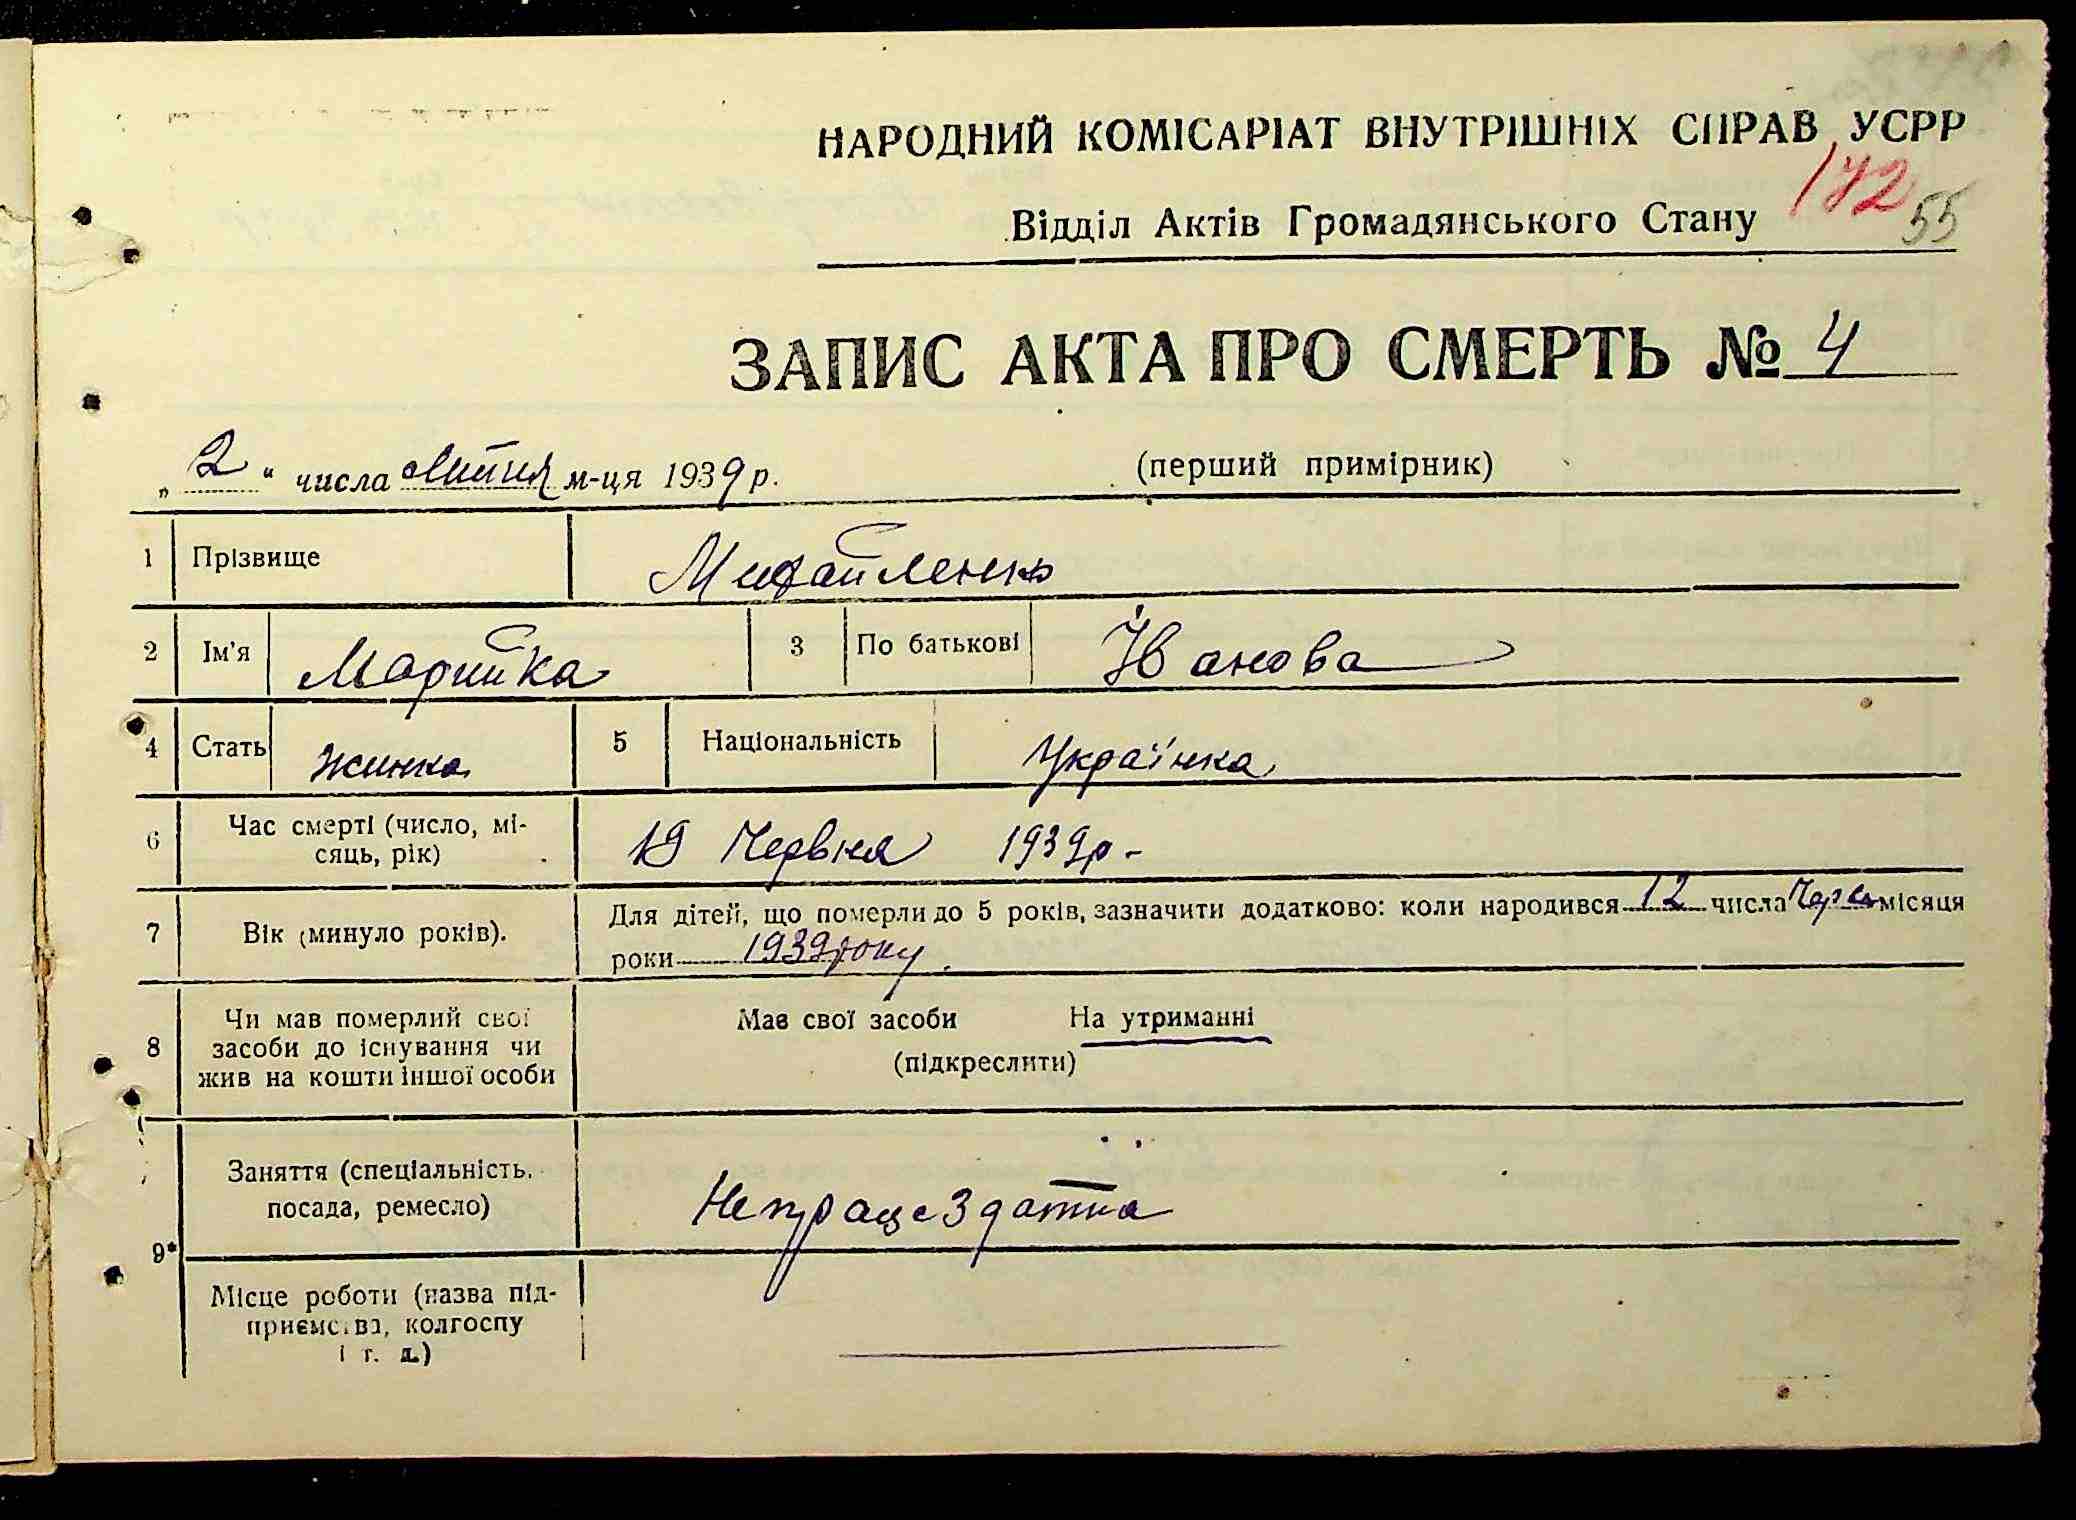 НАРОДНИЙ КОМІСАРІАТ ВНУТРІШНІХ СПРАВ УСРР
172
Відділ Актів Громадянського Стану
55
ЗАПИС АКТА ПРО СМЕРТЬ № 4
„2“ числа Липня м-ця 1939 р.
(перший примірник)
1 Прізвище Михайленко
2 Ім'я Марийка 3 По батькові Іванова
4 Стать Жинка 5 Національність Українка
6 Час смерті (число, мі-
сяць, рік)
19 Червня 1939 р -
7 Вік (минуло років).
Для дітей, що померли до 5 років, зазначити додатково: коли народився 12 числа Черв місяця
роки 1939 року.
8 Чи мав померлий свої
засоби до існування чи
жив на кошти іншої особи
Мав свої засоби На утриманні
(підкреслити)
9* Заняття (спеціальність,
посада, ремесло)
Непрацездатна
Місце роботи (назва під-
приємства, колгоспу
і т. д.)